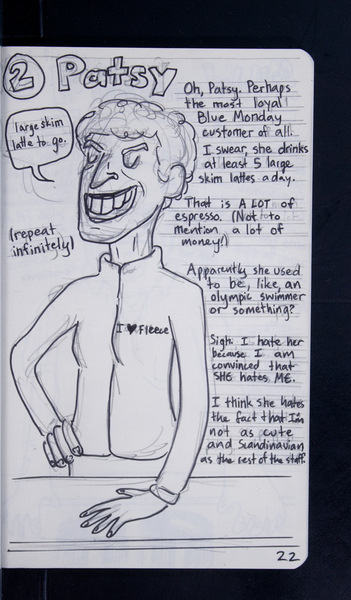 2 Patsy
Oh, Patsy. Perhaps
the most loyal
Blue Monday
customer of all.
I swear, she drinks
at least 5 large
skim lattes a day.
large skim
latte to go.
(repeat
infinitely)
That is A LOT of
espresso. (Not to
mention a lot of
money!)
Apparently she used
to be, like, an
olympic swimmer
or something?
I ♥ Fleece
Sigh. I hate her
because I am
convinced that
SHE hates ME.
I think she hates
the fact that I'm
not as cute
and Scandinavian
as the rest of the staff.
22